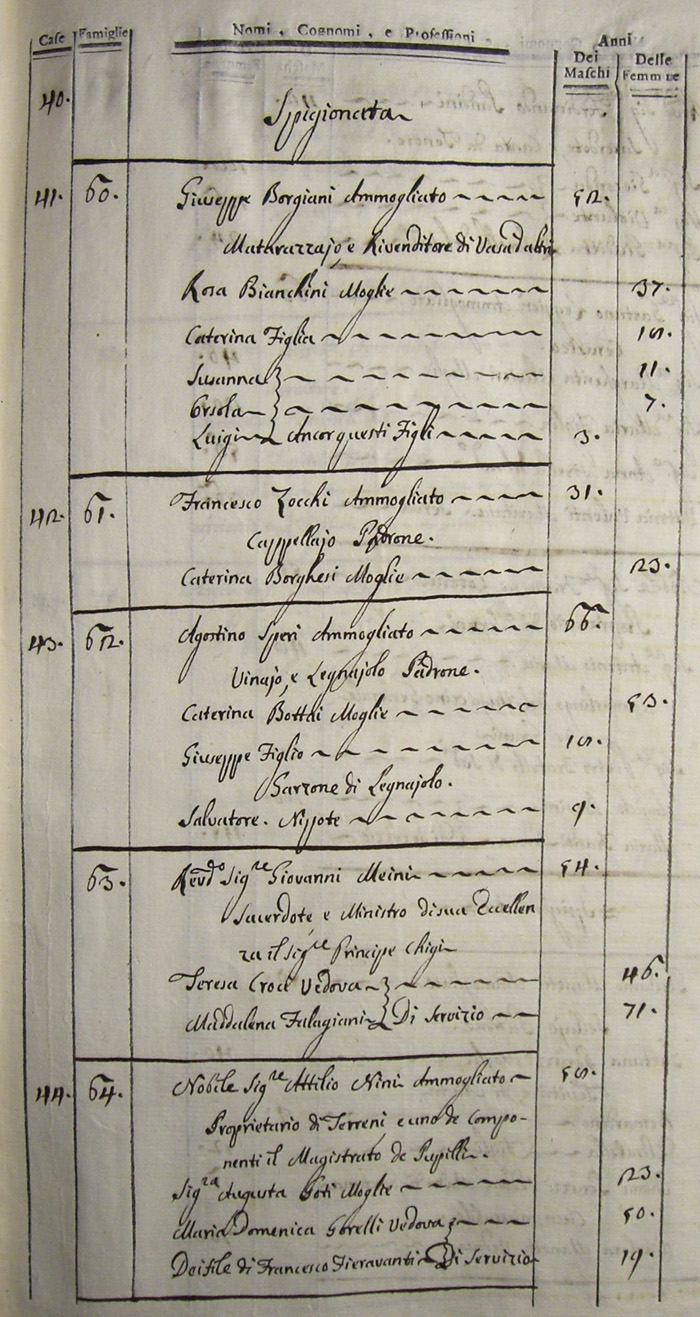 Case Famiglie Nomi, Cognomi, e Professioni Anni
Dei Maschi Delle Femmine
40. Spigionata
41. 60. Giuseppe Borgiani Ammogliato 52.
Matarazzajo, e Rivenditore di Vasa d'altri
Rosa Bianchini Moglie 37.
Caterina Figlia
Susanna 11.
Orsola 7.
Luigi Ancor questi Figli 3.
42. 61. Francesco Zocchi Ammogliato 31.
Cappellajo Padrone.
Caterina Borghesi Moglie 23.
43. 62. Agostino Speri Ammogliato 66.
Vinajo, e Legnajolo Padrone.
Caterina Bottai Moglie 53.
Giuseppe Figlio
Garzone di Legnajolo.
Salvatore. Nipote 9.
63. Revd.o Sig.re Giovanni Meini 54.
Sacerdote e Ministro di sua Eccellen
za il Sig.re Principe Chigi
Teresa Croci Vedova 46.
Maddalena Falagiani Di Servizio 71.
44. 64. Nobile Sig.re Attilio Nini Ammogliato
Proprietario di Terreni e uno de Compo-
nenti il Magistrato de Pupilli.
Sig.ra Augusta Goti Moglie 23.
Maria Domenica Gorelli Vedova 50.
Deifile di Francesco Fieravanti Di Servizio 19.